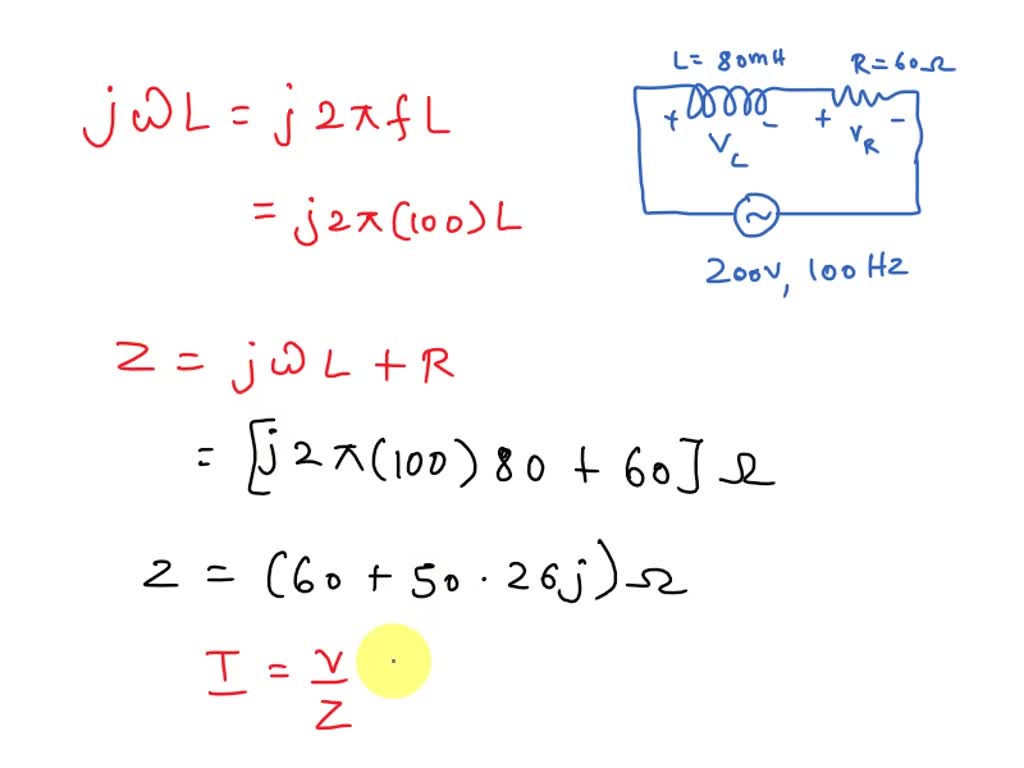 jωL = j2πfL
= j2π(100)L
L= 80mH R=60Ω
+ - + -
V_L V_R
~
200V, 100HZ
Z = jωL + R
= [j2π(100)80 + 60]Ω
Z = (60 + 50.26j)Ω
I = V/Z